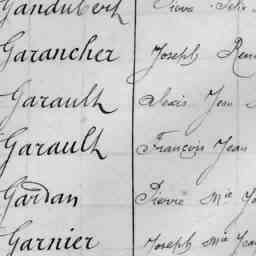 Gandubert Pierre Félix
Garancher Joseph René
Garault Alexis Jean
Garault François Jean
Gardan Pierre Mie
Garnier Joseph Mie Jean